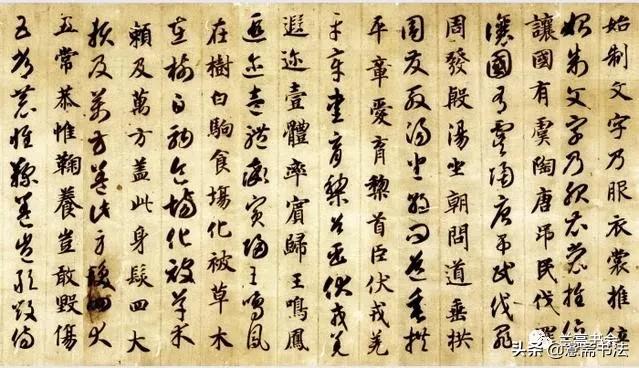 始制文字乃服衣裳推位
始制文字乃服衣裳推位
讓國有虞陶唐弔民伐罪
讓國有虞陶唐弔民伐罪
周發殷湯坐朝問道垂拱
周發殷湯坐朝問道垂拱
平章愛育黎首臣伏戎羌
平章愛育黎首臣伏戎羌
遐迩壹體率賓歸王鳴鳳
遐迩壹體率賓歸王鳴鳳
在樹白駒食場化被草木
在樹白駒食場化被草木
賴及萬方盖此身髮四大
賴及萬方盖此身髮四大
五常恭惟鞠養豈敢毀傷
五常恭惟鞠養豈敢毀傷
兰亭书会
头条 斋书法